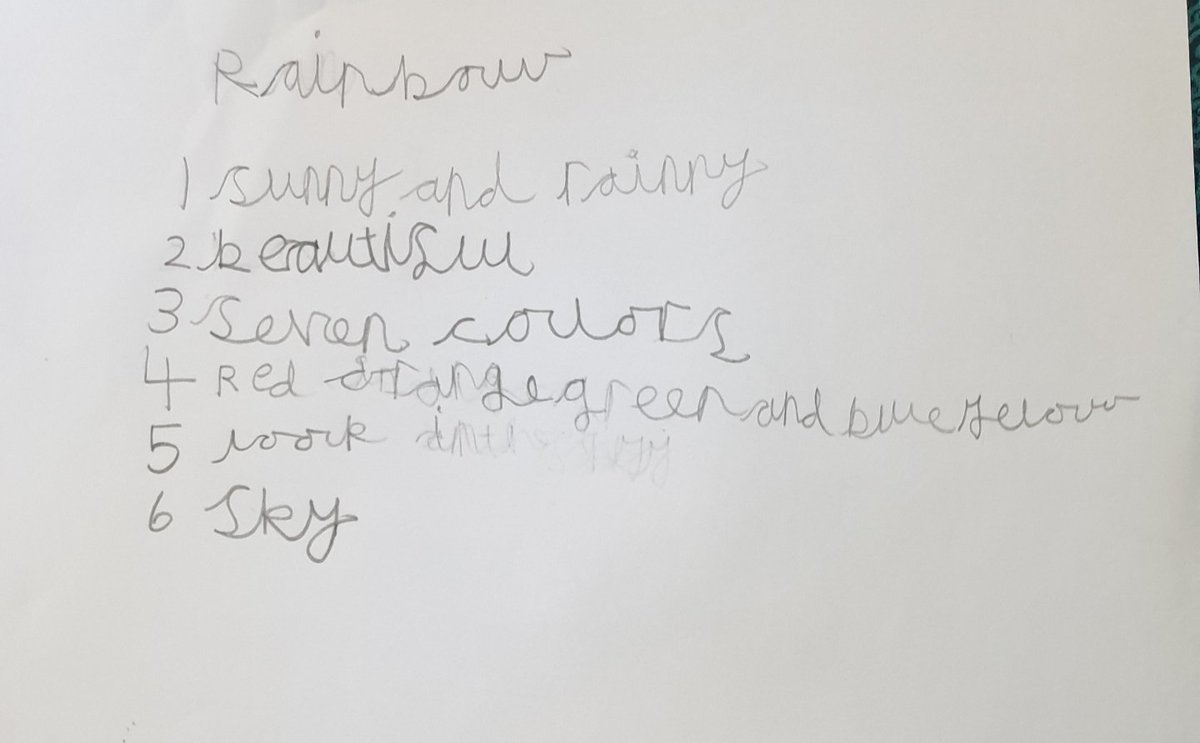 Rainbow
1 sunny and rainny
2 beautiful
3 Seven colors
4 Red orange green and blue yelow
5 look
6 Sky